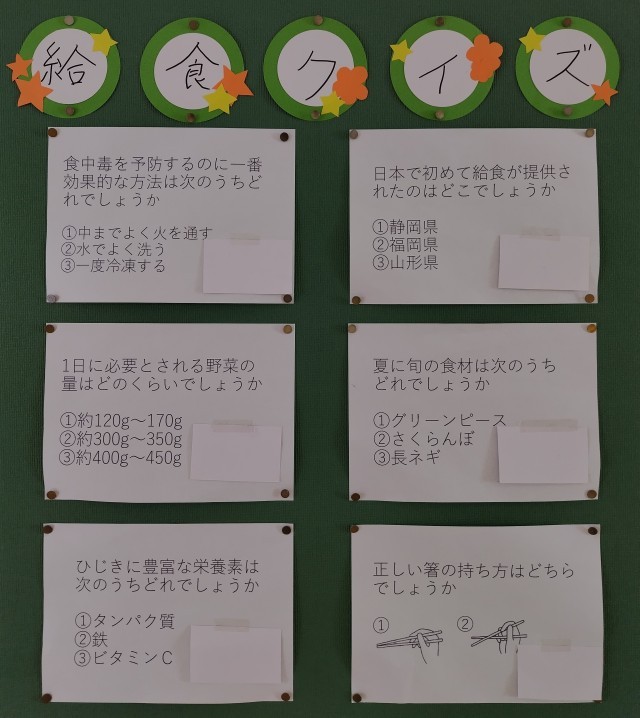 給食クイズ
食中毒を予防するのに一番
効果的な方法は次のうちど
れでしょうか
①中までよく火を通す
②水でよく洗う
③一度冷凍する
日本で初めて給食が提供さ
れたのはどこでしょうか
①静岡県
②福岡県
③山形県
1日に必要とされる野菜の
量はどのくらいでしょうか
①約120g～170g
②約300g～350g
③約400g～450g
夏に旬の食材は次のうち
どれでしょうか
①グリーンピース
②さくらんぼ
③長ネギ
ひじきに豊富な栄養素は
次のうちどれでしょうか
①タンパク質
②鉄
③ビタミンC
正しい箸の持ち方はどちら
でしょうか
① ②